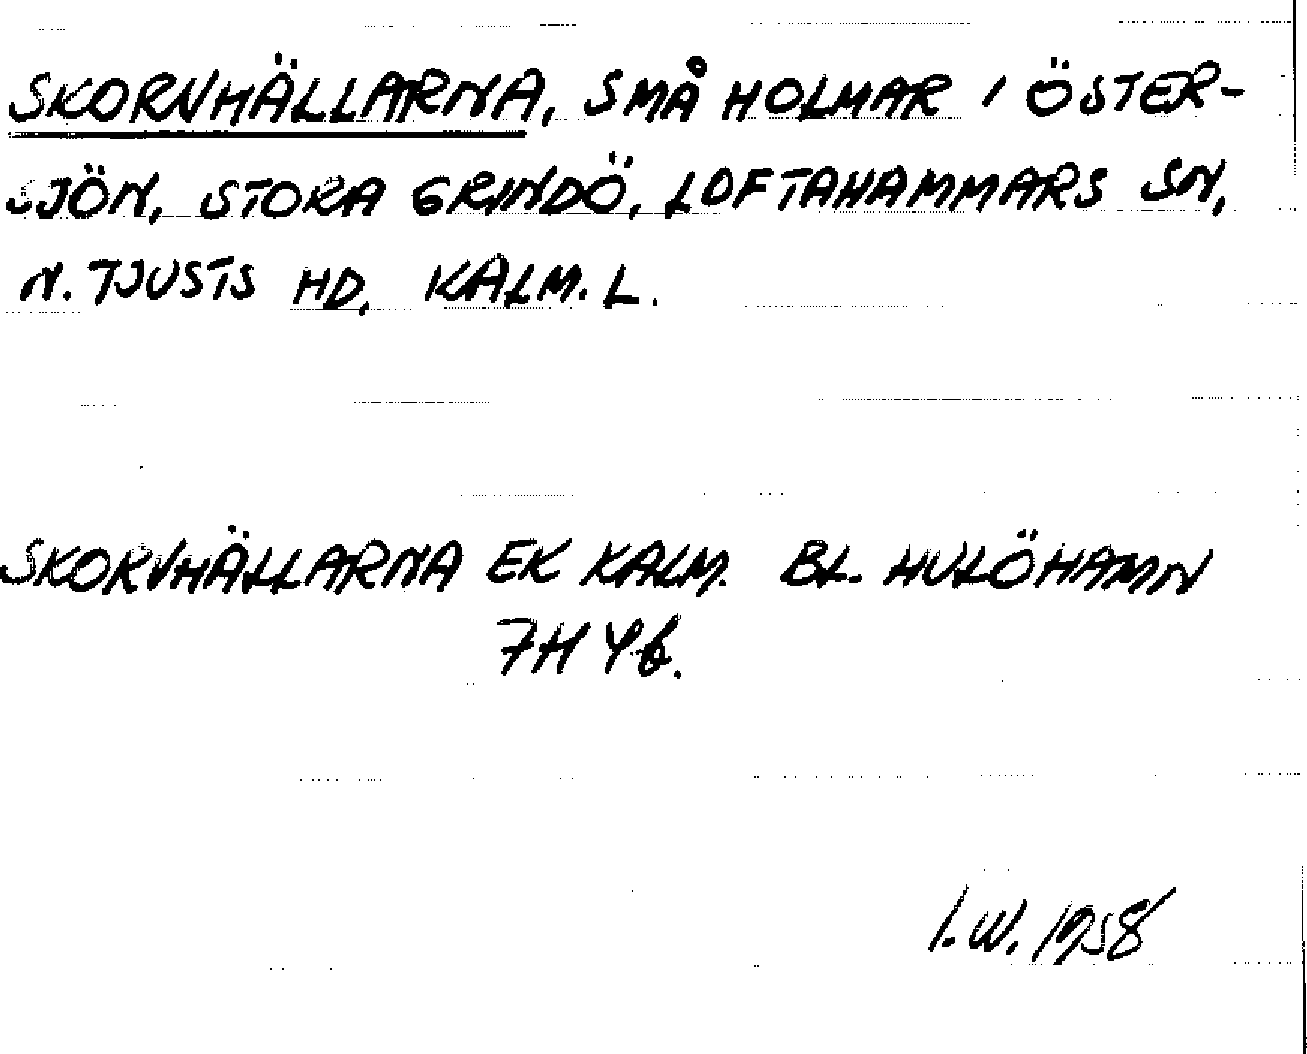 SKORVHÄLLARNA, SMÅ HOLMAR I ÖSTER-
SJÖN, STORA GRINDÖ, LOFTAHAMMARS SN,
N. TJUSTS HD, KALM. L.
SKORVHÄLLARNA EK KALM. BL. HULÖHAMN
7H 4b.
I.W. 1958